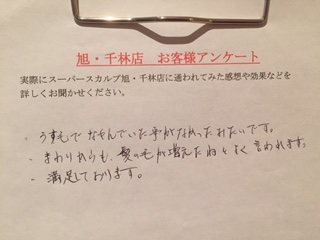 旭・千林店 お客様アンケート
実際にスーパースカルプ旭・千林店に通われてみた感想や効果などを
詳しくお聞かせください。
・うすもでなやんでいた事がなかったみたいです。
・まわりからも、髪の毛が増えたねとよく言われます。
・満足しております。